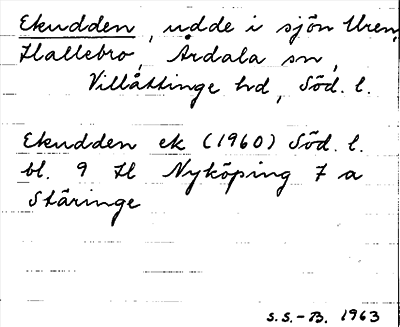 Ekudden, udde i sjön Uren,
Hallebro, Årdala sn,
Villåttinge hd, Söd. l.
Ekudden ek (1960) Söd. l.
bl. 9 H Nyköping 7 a
Stäringe
S.S.-B. 1963